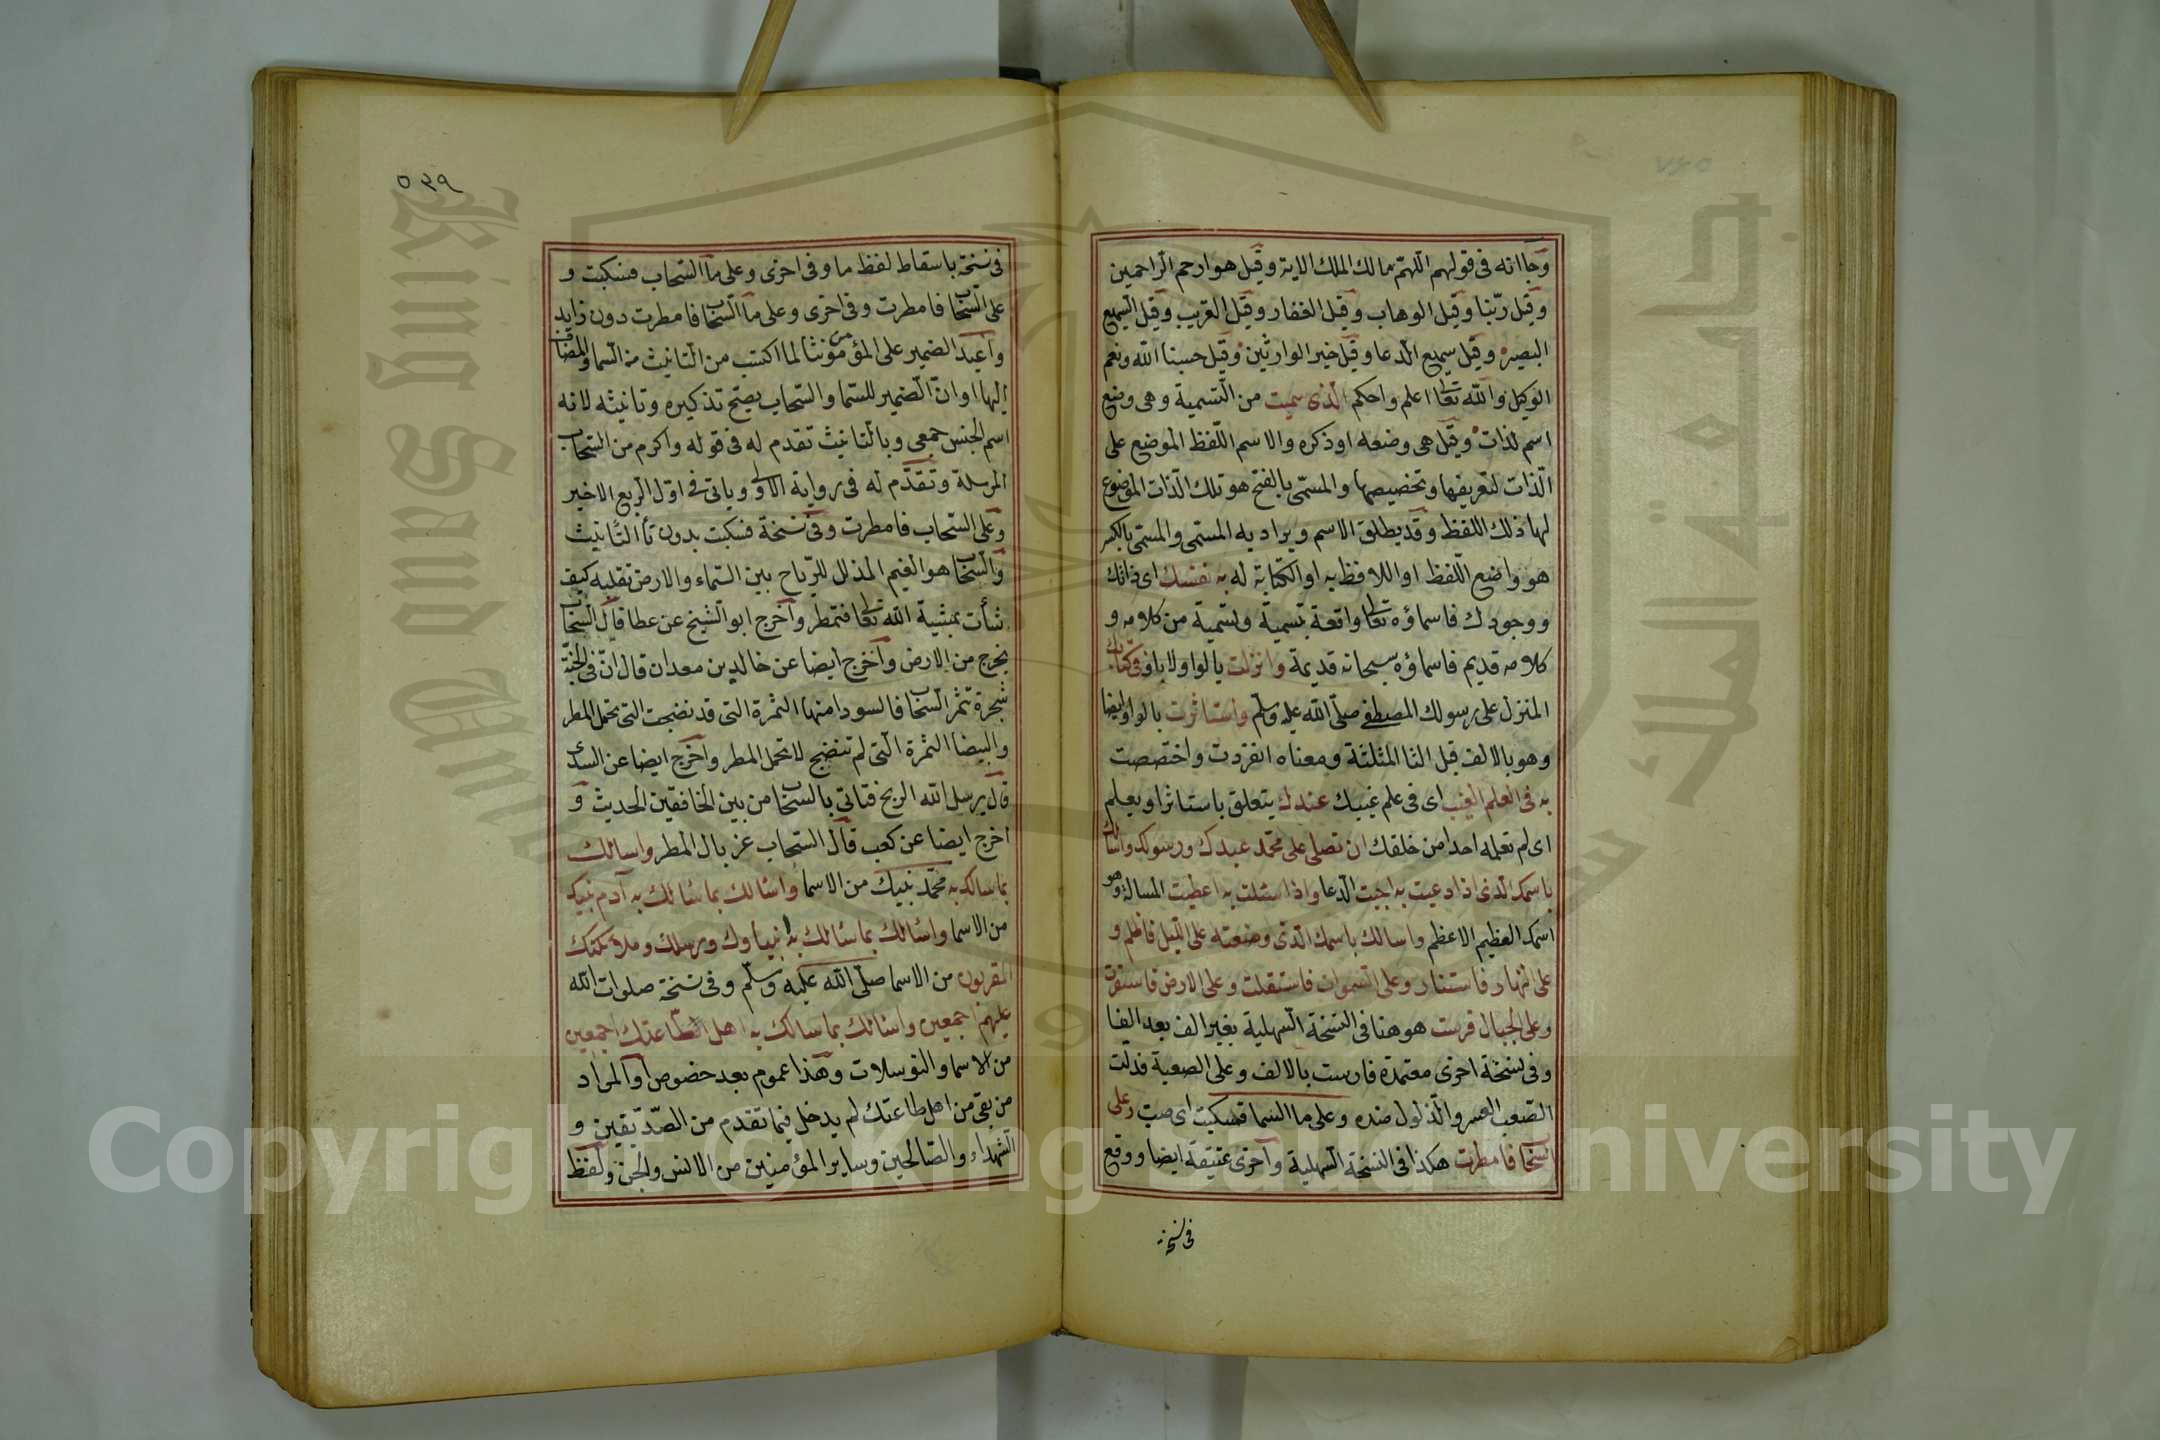 وجاانه فى قولهم اللهم مالك الملك الاية وقيل هو ارحم الراحمين
وقيل ربنا وقيل الوهاب وقيل الغفار وقيل القريب وقيل السميع
البصير وقيل سميع الدعا وقيل خير الوارثين وقيل حسبنا الله ونعم
الوكيل والله تعا اعلم واحكم الذى سميت من التسمية وهى وضع
اسم لذات وقيل هى وضعه او ذكره والاسم اللفظ الموضع على
الذات لتعريفها وتخصيصها والمسمى بالفتح هو تلك الذات الموضوع
لها ذلك اللفظ وقد يطلق الاسم ويراد به المسمى والمسمى بالكسر
هو واضع اللفظ او اللافظ به او الكتابة له به نفسك اى ذاتك
ووجودك فاسماؤه تعا واقعة بتسمية وتسمية من كلامه و
كلامه قديم فاسماؤه سبحانه قديمة وانزلت بالواو لا باو فى كتابك
المنزل على رسولك المصطفى صلى الله عليه وسلم واستاثرت بالواو ايضا
وهو بالالف قبل الثا المثلثة ومعناه انفردت واختصصت
به فى العلم الغيب اى فى علم غيبك عندك يتعلق باستاثرا ويعلم
اى لم تعلمه احدا من خلقك ان تصلى على محمد عبدك ورسولك واسالك
باسمك الذى اذا دعيت به اجبت الدعا واذا سئلت به اعطيت المسالة وهو
اسمك العظيم الاعظم واسالك باسمك الذى وضعته على الليل فاظلم و
على النهار فاستنار وعلى السموات فاستقلت وعلى الارض فاستقرت
وعلى الجبال فرست هو هنا فى النسخة السهلية بغير الف بعد الفا
وفى نسخة اخرى معتمدة فارست بالالف وعلى الصعبة فذلت
الصعب العسر والذلول ضده وعلى ما السما فسكبت اى صبت وعلى
السحاب فامطرت هكذا فى النسخة السهلية وآخرى عتيقة ايضا ووقع
فى نسخة
٥٣٩
فى نسخة باسقاط لفظ ما وفى اخرى وعلى ما السحاب فسكبت و
على السحاب فامطرت وفى اخرى وعلى ما السحاب فامطرت دون زايد
واعيد الضمير على المؤمن مؤنثا لما اكتسب من التانيث من السما والمضاف
اليها او ان الضمير للسما والسحاب يصح تذكيره وتانيثه لانه
اسم الجنس جمعى وبالتانيث تقدم له فى قوله واكرم من السحاب
المرسلة وتقدم له فى رواية الاولى وياتى فى اول الربع الاخير
وعلى السحاب فامطرت وفى نسخة فسكبت بدون تا التانيث
والسحاب هو الغيم المذلل للرياح بين السماء والارض تقلبه كيف
شأت بمشية الله تعا فتمطر وآخرج ابو الشيخ عن عطا قال السحاب
يخرج من الارض وآخرج ايضا عن خالد بن معدان قال ان فى الجنة
شجرة تثمر السحاب فالسودا منها الثمرة التى قد نضجت التى تحمل المطر
والبيضا الثمرة التى لم تنضج لا تحمل المطر واخرج ايضا عن السدى
قال يرسل الله الريح فتاتى بالسحاب من بين الخافقين الحديث و
اخرج ايضا عن كعب قال السحاب غربال المطر واسالك
بما سالك به محمد نبيك من الاسما واسالك بما سالك به آدم نبيك
من الاسما واسالك بما سالك به انبياوك ورسلك وملائكتك
المقربون من الاسما صلى الله عليه وسلم وفى نسخة صلوات الله
عليهم اجمعين واسالك بما سالك به اهل طاعتك اجمعين
من الاسما والتوسلات وهذا عموم بعد خصوص او المراد
من بقى من اهل طاعتك لم يدخل فيما تقدم من الصديقين و
الشهداء والصالحين وساير المؤمنين من الانس والجن ولفظ
King Saud University
جامعة الملك سعود
Copyright © King Saud University